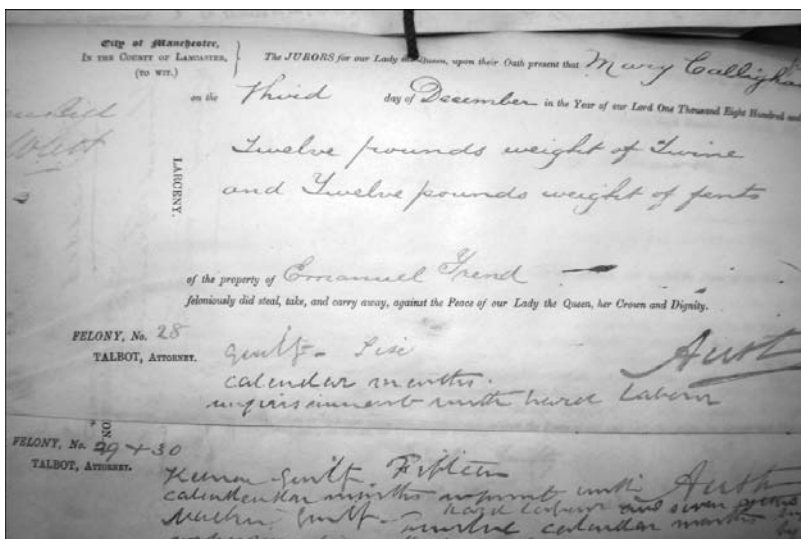 City of Manchester,
In the County of Lancaster,
(to wit.)
The JURORS for our Lady the Queen, upon their Oath present that Mary Callighan
on the Third day of December in the Year of our Lord One Thousand Eight Hundred and
LARCENY.
Twelve pounds weight of Twine
and Twelve pounds weight of fents
of the property of Emanuel Trend
feloniously did steal, take, and carry away, against the Peace of our Lady the Queen, her Crown and Dignity.
FELONY, No. 28
TALBOT, Attorney.
Guilty - Six
calendar months.
imprisonment with hard Labour
Aust
FELONY, No. 29 + 30
TALBOT, Attorney.
Guilty - Fifteen
calendendar months with Aust
hard Labour and seven years
Guilty - twelve calendar months